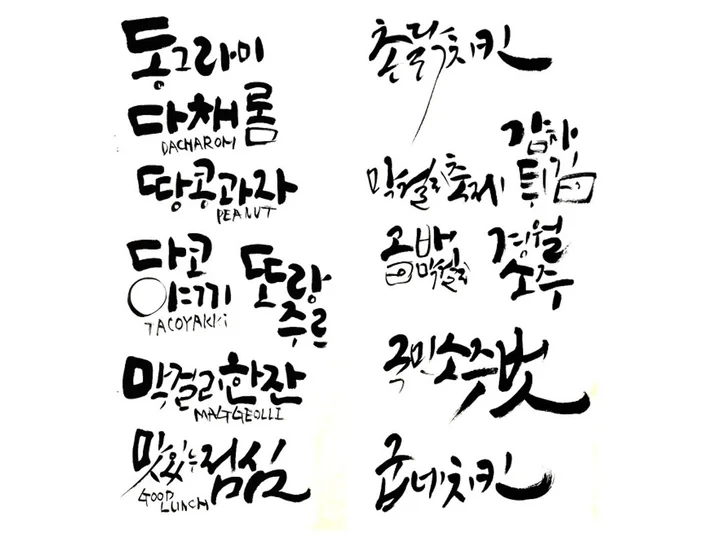 동그라미
다채롬
DACHAROM
땅콩과자
PEANUT
다코
야끼
TACOYAKKi
또랑
주르
막걸리한잔
MAGGEOLLI
맛있는점심
GOOD
LUNCH
촌닭치킨
감자
튀김
막걸리축제
곰배
막걸리
경월
소주
국민소주벗
굽네치킨